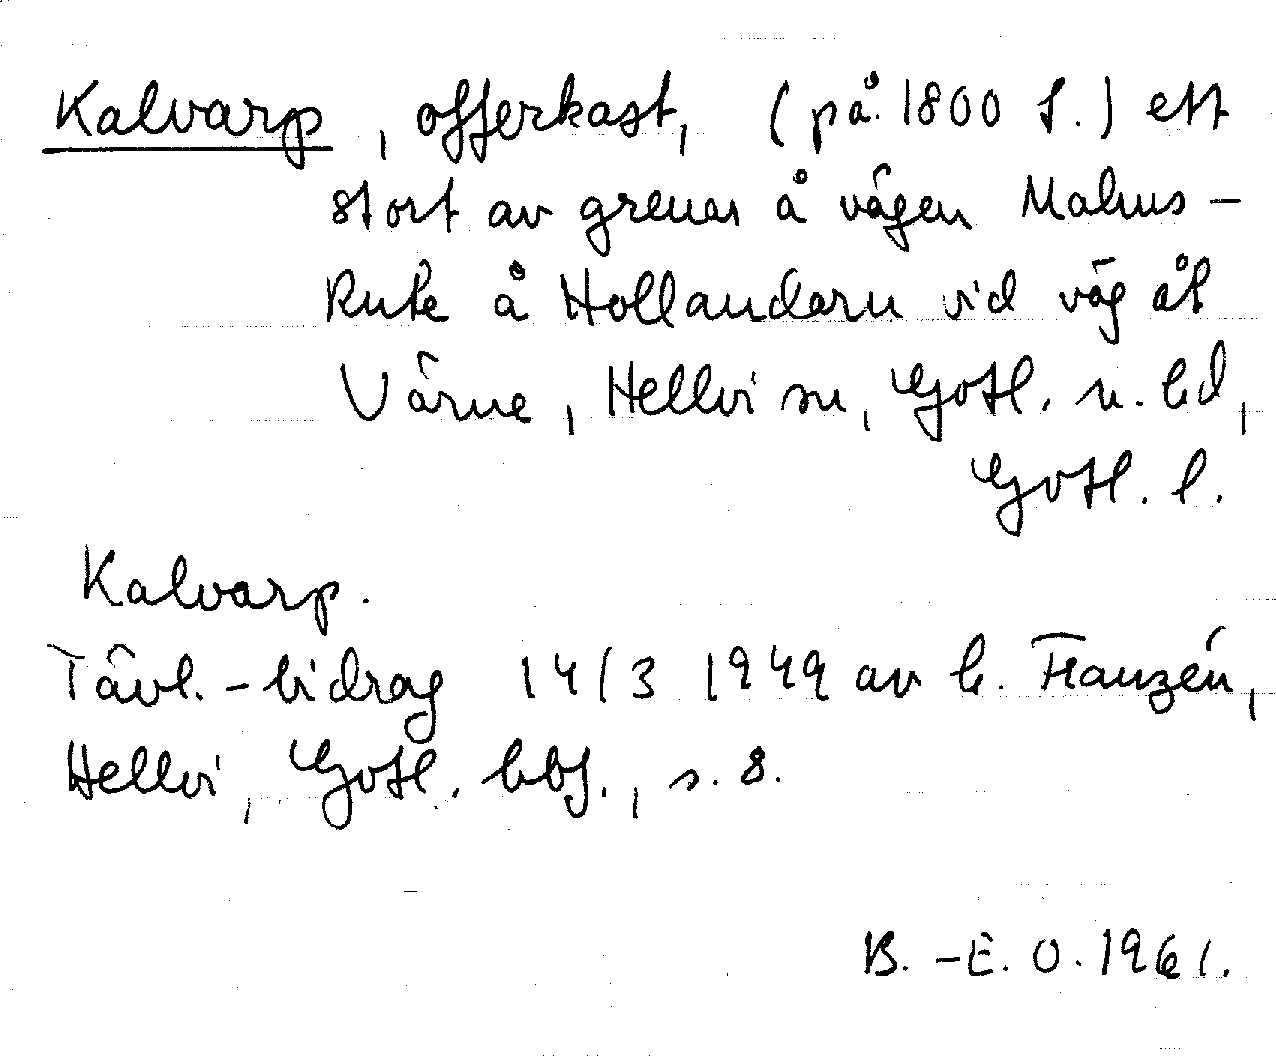 Kalvarp, offerkast, (på 1800 t.) ett
stort av grenar å vägen Malms-
Rute å Hollandarn vid väg åt
Värne, Hellvi sn, Gotl. n. hd,
Gotl. l.
Kalvarp.
Tävl.-bidrag 14/3 1949 av C. Franzén,
Hellvi, Gotl. bbf., s. 8.
B.-E. O. 1961.